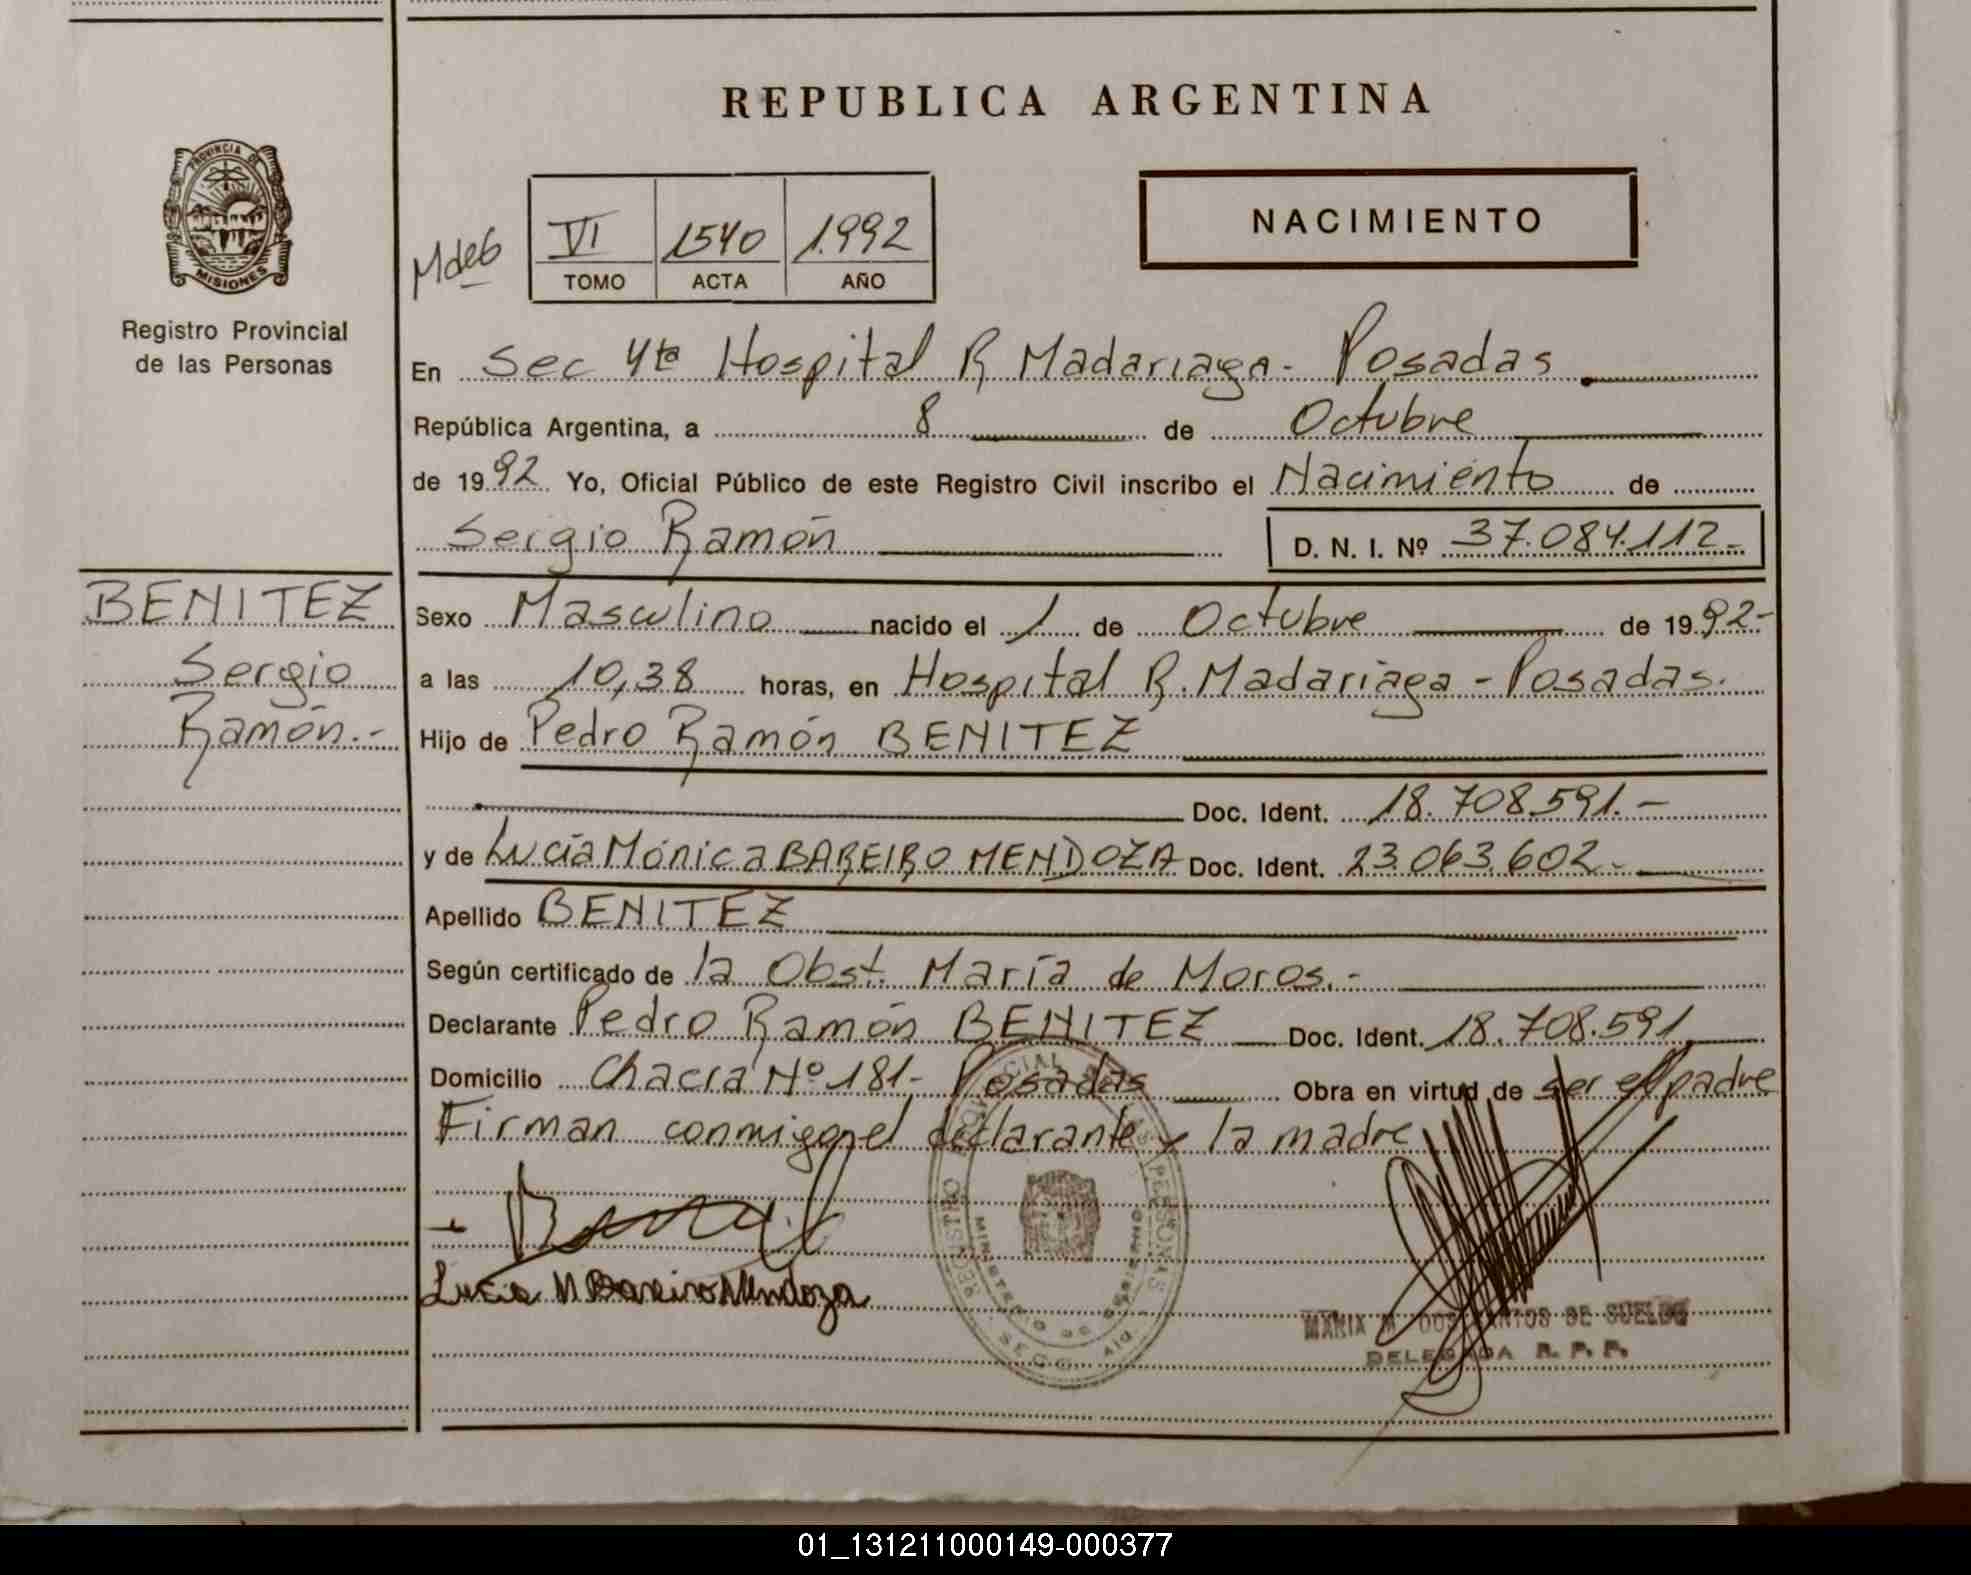 REPUBLICA ARGENTINA
PROVINCIA DE
MISIONES
Registro Provincial
de las Personas
NACIMIENTO
VI 1540 1.992
TOMO ACTA AÑO
En Sec 4ta Hospital R Madariaga - Posadas
República Argentina, a 8 de Octubre
de 1992 Yo, Oficial Público de este Registro Civil inscribo el Nacimiento de
Sergio Ramón D. N. I. Nº 37.084.112-
BENITEZ
Sergio
Ramón.-
Sexo Masculino nacido el 1 de Octubre de 1992-
a las 10,38 horas, en Hospital R. Madariaga - Posadas.
Hijo de Pedro Ramón BENITEZ
Doc. Ident. 18.708.591.-
y de Lucía Mónica BAREIRO MENDOZA Doc. Ident. 23.063.602-
Apellido BENITEZ
Según certificado de la Obst. María de Moros.-
Declarante Pedro Ramón BENITEZ Doc. Ident. 18.708.591
Domicilio Chacra Nº 181- Posadas Obra en virtud de ser el padre
Firman conmigo, el declarante y la madre
Lucia M Bareiro Mendoza
REGISTRO PROVINCIAL PERSONAS
MINISTERIO DE GOBIERNO
MARIA M. DOS SANTOS DE SUELDO
DELEGADA R. P. P.
01_131211000149-000377